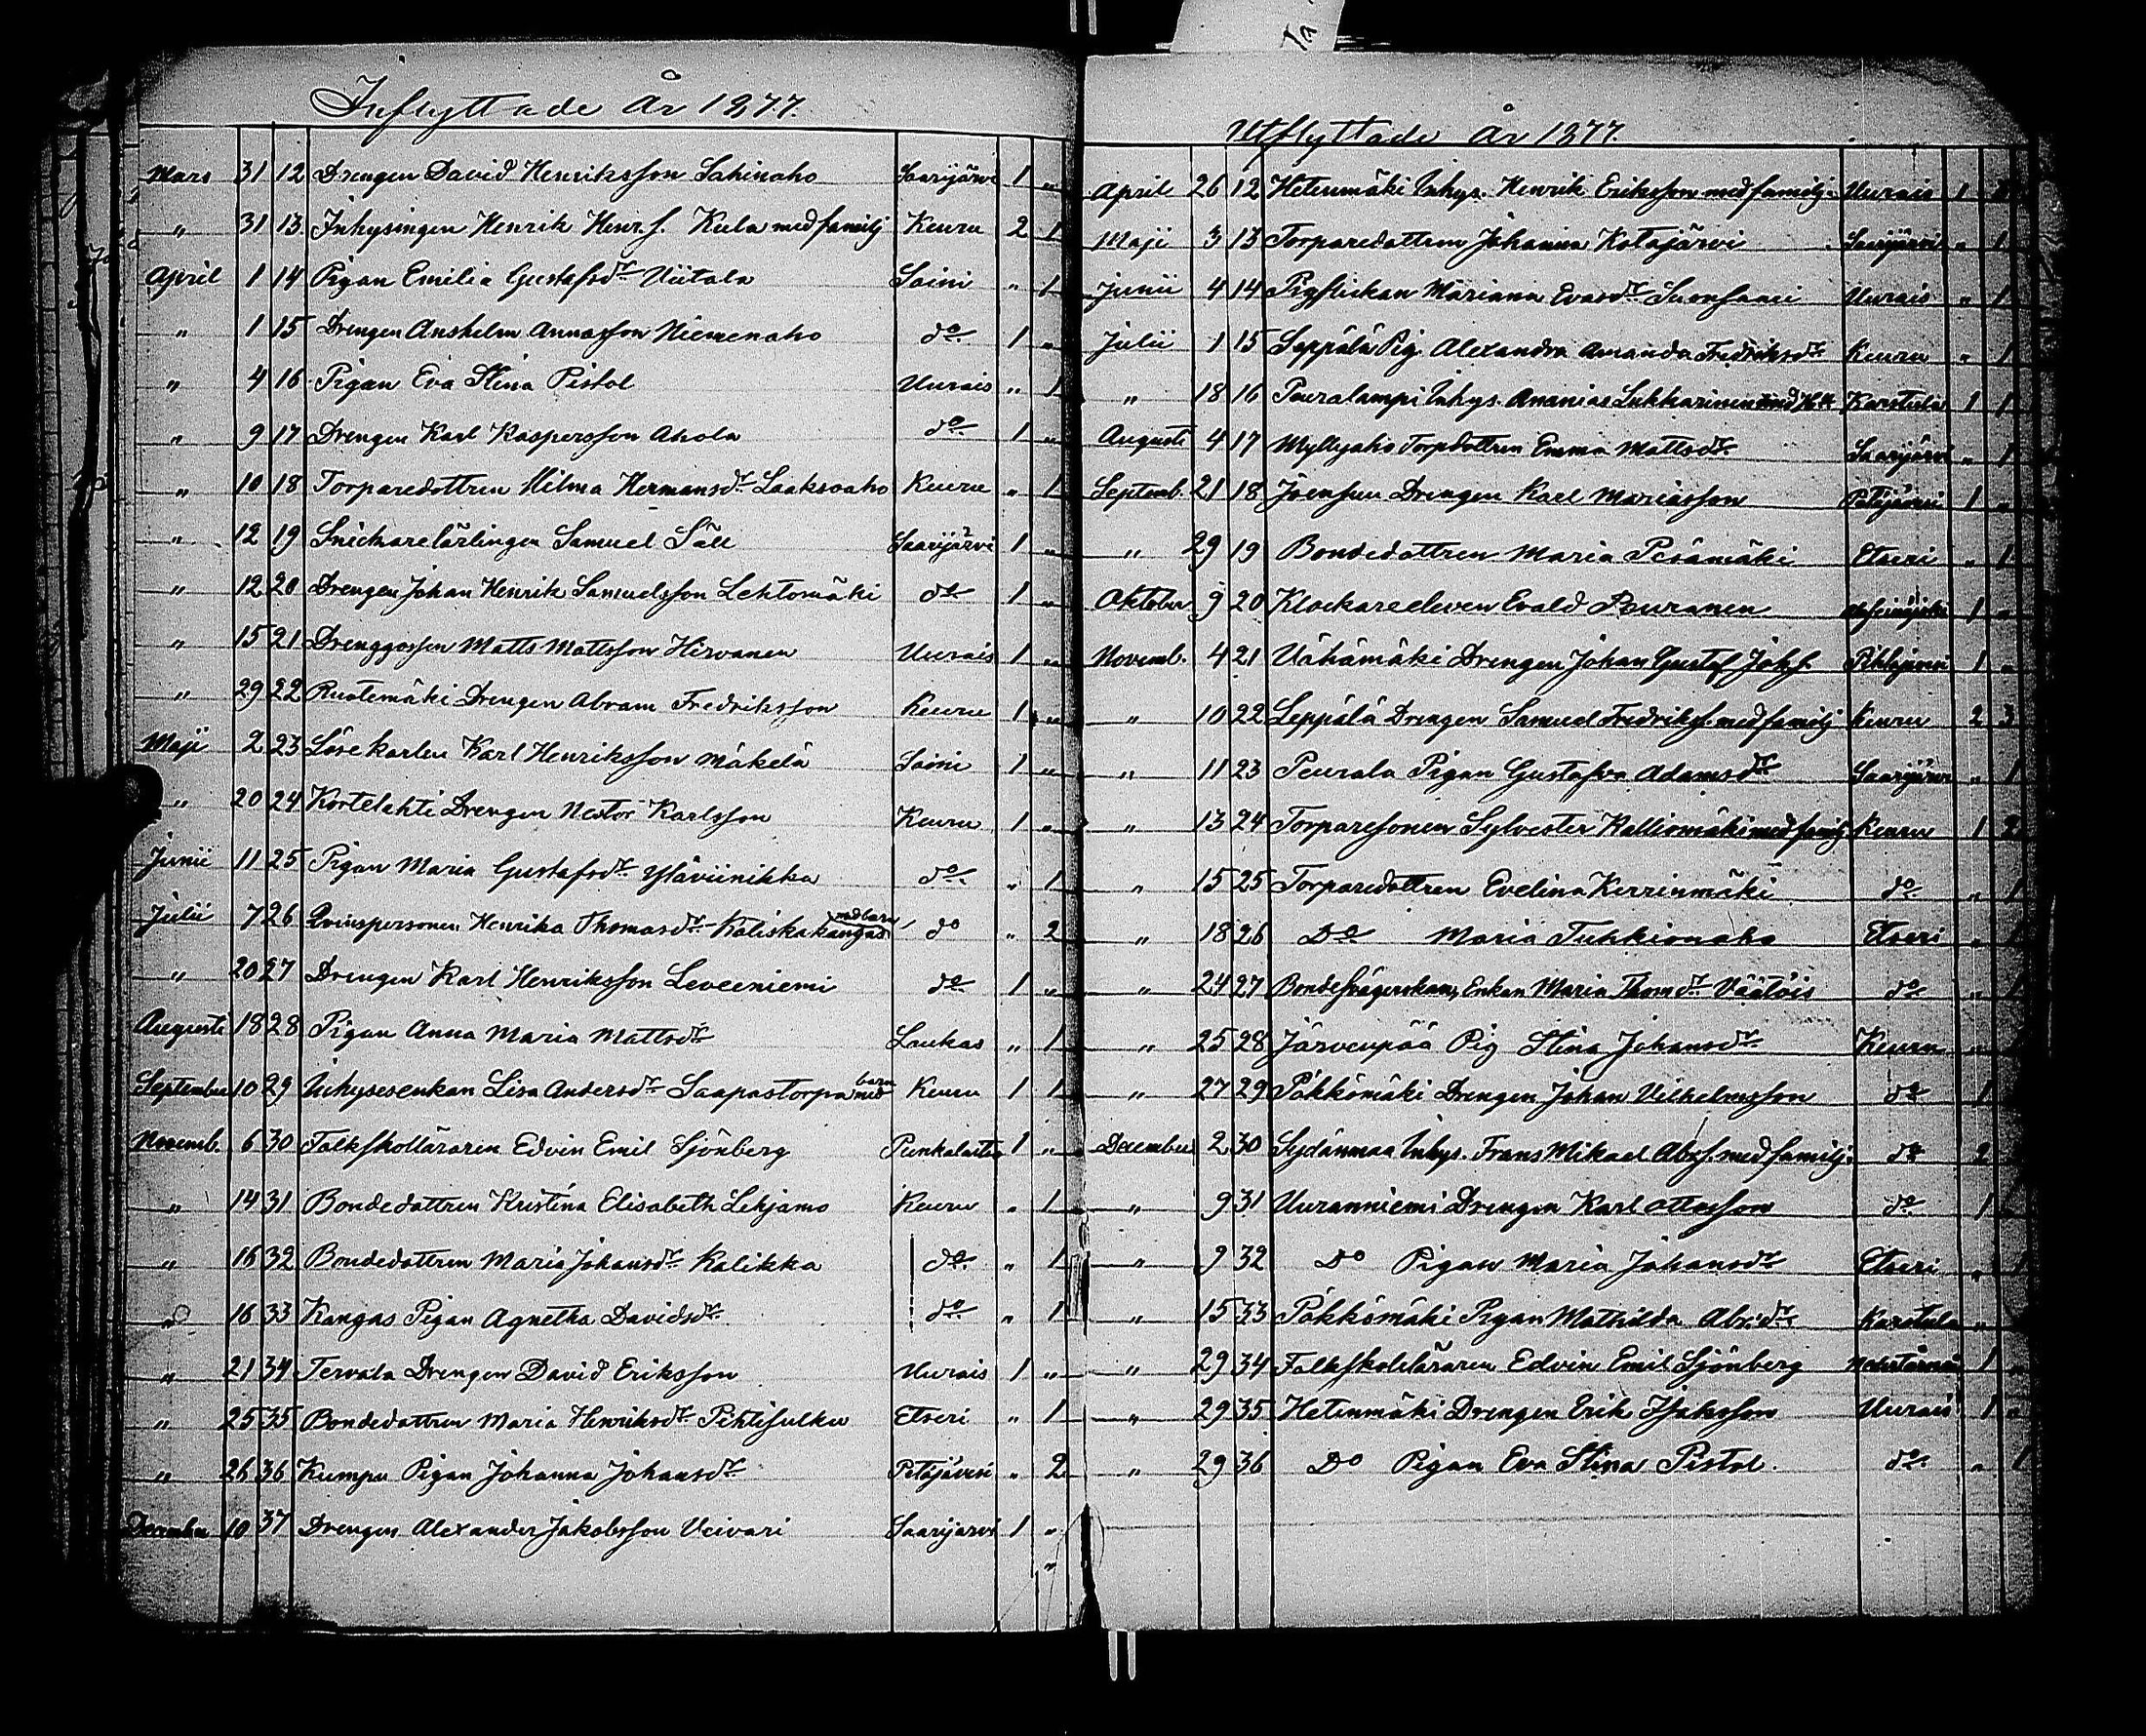 Inflyttade År 1877.
Mars 31 12 Drengen David Henriksson Sahinaho Saarijärvi 1 "
" 31 13 Inhysingen Henrik Henr.s. Kula med familj Keuru 2 1
April 1 14 Pigan Emilia Gustafsdr Viitala Saini " 1
" 1 15 Drengen Anshelm Annasson Niemenaho do 1 "
" 4 16 Pigan Eva Stina Pistol Uurais " 1
" 9 17 Drengen Karl Kaspersson Ahola do 1 "
" 10 18 Torparedottren Hilma Hermansdr Laaksoaho Keuru " 1
" 12 19 Snickarelärlingen Samuel Säll Saarijärvi 1 "
" 12 20 Drengen Johan Henrik Samuelsson Lehtomäki do 1 "
" 15 21 Drenggossen Matts Mattsson Hirvanen Uurais 1 "
" 29 22 Ruotemäki Drengen Abram Fredriksson Keuru 1 "
Maji 2 23 Lösekarlen Karl Henriksson Mäkelä Saini 1 "
" 20 24 Kortelahti Drengen Nestor Karlsson Keuru 1 "
Junii 11 25 Pigan Maria Gustafsdr Yläviinikka do " 1
Julii 7 26 Qvinspersonen Henrika Thomasdr Kaliskakangas med barn do " 2
" 20 27 Drengen Karl Henriksson Leveeniemi do 1 "
Augusti 18 28 Pigan Anna Maria Mattsdr Laukas " 1
September 10 29 Inhysesenkan Lisa Andersdr Saapastorpa med barn Keuru 1 1
Novemb. 6 30 Folkskolläraren Edvin Emil Sjönberg 1 "
" 14 31 Bondedottren Kristina Elisabeth Lehjamo Keuru " 1
" 16 32 Bondedottren Maria Johansdr Kalikka do " 1
" 16 33 Kangas Pigan Agnetha Davidsdr do " 1
" 21 34 Tervala Drengen David Eriksson Uurais 1 "
" 25 35 Bondedottren Maria Henriksdr Pihtisulku Etseri " 1
" 26 36 Kumpu Pigan Johanna Johansdr Petäjävesi " 2
December 10 37 Drengen Alexander Jakobsson Veivari Saarijarvi 1 "
Utflyttade År 1877.
April 26 12 Hetenmäki Inhys. Henrik Eriksson med familj Uurais 1
Maji 3 13 Torparedottren Johanna Kotajärvi Saarijärvi " 1
Junii 4 14 Pigflickan Mariana Evasdr Suonsaari Uurais " 1
Julii 1 15 Seppälä Pig. Alexandra Amanda Fredriksdr Keuru " 1
" 18 16 Peuralampi Inhys. Ananias Lukkarinen med Karstula 1 1
Augusti 4 17 Myllyaho Torpdottren Emma Mattsdr Saarijärvi " 1
Septemb. 21 18 Joensuu Drengen Karl Mariasson 1 "
" 29 19 Bondedottren Maria Pesämäki Etseri " 1
Oktober 9 20 Klockareeleven Evald Peuranen 1 "
Novemb. 4 21 Vähämäki Drengen Johan Gustaf Joh.s. Pihlajavesi 1 "
" 10 22 Leppälä Drengen Samuel Fredrikss. med familj Keuru 2 3
" 11 23 Peurala Pigan Gustafva Adamsdr Saarijärvi " 1
" 13 24 Torparesonen Sylvester Kalliomäki med familj Keuru 1 2
" 15 25 Torparedottren Evelina Kerrinmäki do " 1
" 18 26 Do Maria Tuhkionaho Etseri " 1
" 24 27 Bondesvägerskan, Enkan Maria Thom.dr Väätäis do " 1
" 25 28 Järvenpää Pig Stina Johansdr Keuru "
" 27 29 Pökkömäki Drengen Johan Vilhelmsson do 1
December 2 30 Sydänmaa Inhys. Frans Mikael Abr.s. med familj. do 2
" 9 31 Uuranniemi Drengen Karl Ottosson do 1
" 9 32 Do Pigan Maria Johansdr Etseri "
" 15 33 Pökkömäki Pigan Mathilda Abr.dr Karstula "
" 29 34 Folkskolläraren Edvin Emil Sjönberg 1 "
" 29 35 Hetenmäki Drengen Erik Isaksson Uurais 1 "
" 29 36 Do Pigan Eva Stina Pistol. do " 1